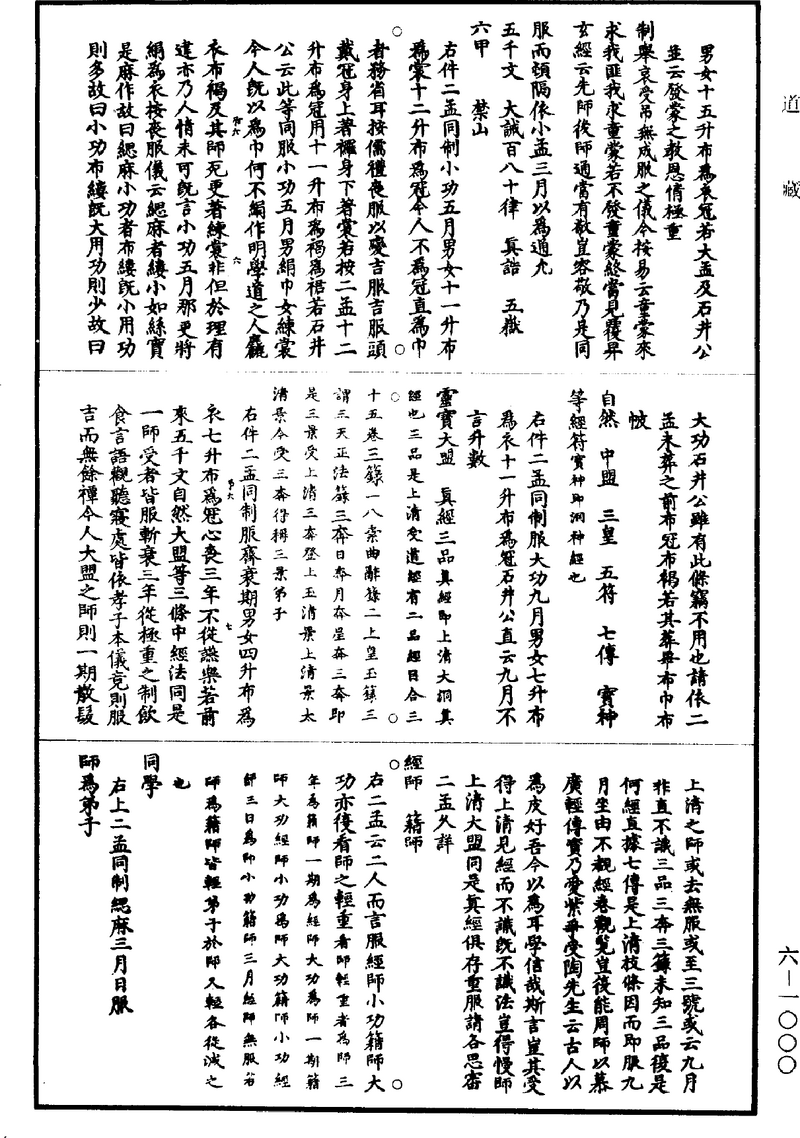 道藏
男女十五升布為衰冠若大孟及石井公
並云發蒙之教恩情極重
制舉哀受吊無成服之儀今按易云童蒙來
求我匪我求童蒙若不發童蒙終當見覆昇
玄經云先師後師通當有敬豈容敬乃是同
服而頓隔依小孟三月以為通允
五千文　大誡百八十律　真誥　五嶽
六甲　禁山
右件二孟同制小功五月男女十一升布
為裳十二升布為冠今人不為冠直為巾
者務省耳按儒禮喪服以變吉服吉服頭
戴冠身上著襦身下著裳若按二孟十二
升布為冠用十一升布為褐為裙若石井
公云此等同服小功五月男絹巾女練裳
今人既以為巾何不絹作明學道之人麤
衣布褐及其師死更著練裳非但於理有
違亦乃人情未可既言小功五月那更將
絹為衣按喪服儀云緦麻者縷小如絲實
是麻作故曰緦麻小功者布縷既小用功
則多故曰小功布縷既大用功則少故曰
大功石井公雖有此條竊不用也請依二
孟未葬之前布冠布褐若其葬畢布巾布
帔
自然　中盟　三皇　五符　七傳　寶神
等經符寶神即洞神經也
右件二孟同制服大功九月男女七升布
為衣十一升布為冠石井公直云九月不
言升數
靈寶大盟　真經三品真經即上清大洞真
經也三品是上清受道經有二品經目合三
十五卷三籙一八素曲辭籙二上皇玉籙三
謂三天正法籙三奔日奔月奔星奔三奔即
是三景受上清三奔登上玉清景上清景太
清景今受三奔得稱三景弟子
右件二孟同制服齋衰期男女四升布為
衣七升布為冠心喪三年不從讌樂若前
來五千文自然大盟等三條中經法同是
一師受者皆服斬衰三年從極重之制飲
食言語觀聽寢處皆依孝子本儀竟則服
吉而無餘禫今人大盟之師則一期散髮
上清之師或去無服或至三號或云九月
非直不識三品三奔三籙未知三品復是
何經直據七傳是上清枝條因而即服九
月生由不覩經卷觀覽豈復能周師以慕
廣輕傳寶乃愛紫華受陶先生云古人以
為皮好吾今以為耳學信哉斯言豈其受
得上清見經而不識既不識法豈得慢師
上清大盟同是真經俱存重服請各思審
二孟久詳
經師　籍師
右二孟云二人而言服經師小功籍師大
功亦復看師之輕重看師輕重者為師三
年為籍師一期為經師大功為師一期籍
師大功經師小功為師大功籍師小功經
師三日為師小功籍師三月經師無服若
師為籍師皆輕弟子於師又輕各從減之
也
同學
右上二孟同制緦麻三月日服
師為弟子
六—一〇〇〇